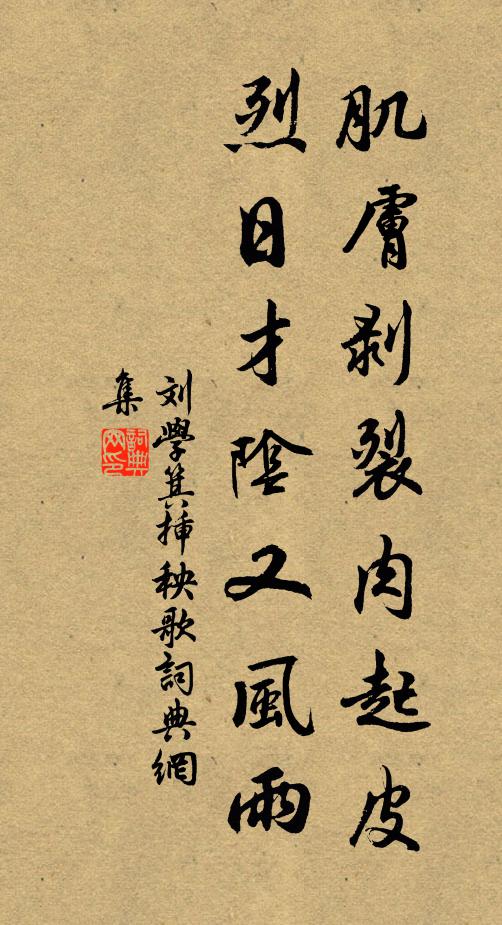 肌膚剥裂肉起皮
烈日才陰又風雨
刘學箕挿秧歌詞典網
集
詞典網印